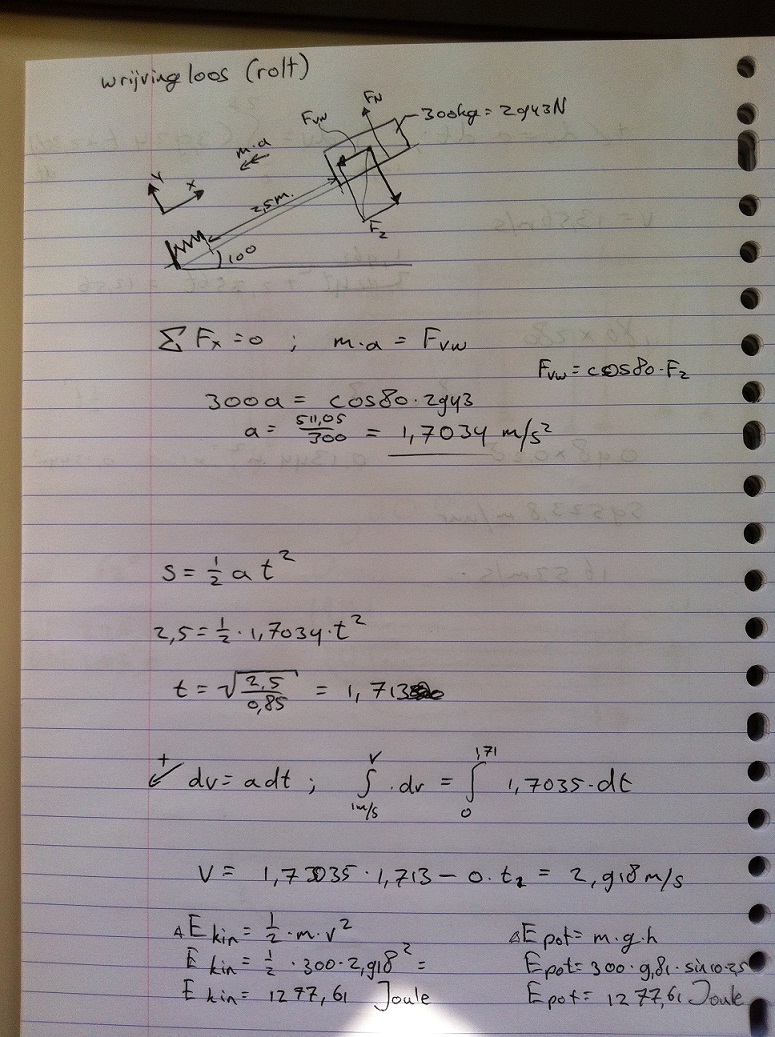 wrijvingloos (rolt)
FN
Fvw
300kg = 2943N
m.a
Y
X
2,5m.
Fz
10°
Σ Fx = 0 ; m.a = Fvw
Fvw = cos80 · Fz
300a = cos80 · 2943
a = 511,05/300 = 1,7034 m/s²
s = ½ a t²
2,5 = ½ · 1,7034 · t²
t = √(2,5/0,85) = 1,713
+
dv = a dt ; ∫_{1m/s}^{V} · dv = ∫_{0}^{1,71} 1,7035 · dt
V = 1,73035 · 1,713 − 0 · t₂ = 2,918 m/s
ΔE kin = ½ · m · v²
ΔE pot = m · g · h
E kin = ½ · 300 · 2,918² =
Epot = 300 · 9,81 · sin10 · 2,5
E kin = 1277,61 Joule
Epot = 1277,61 Joule